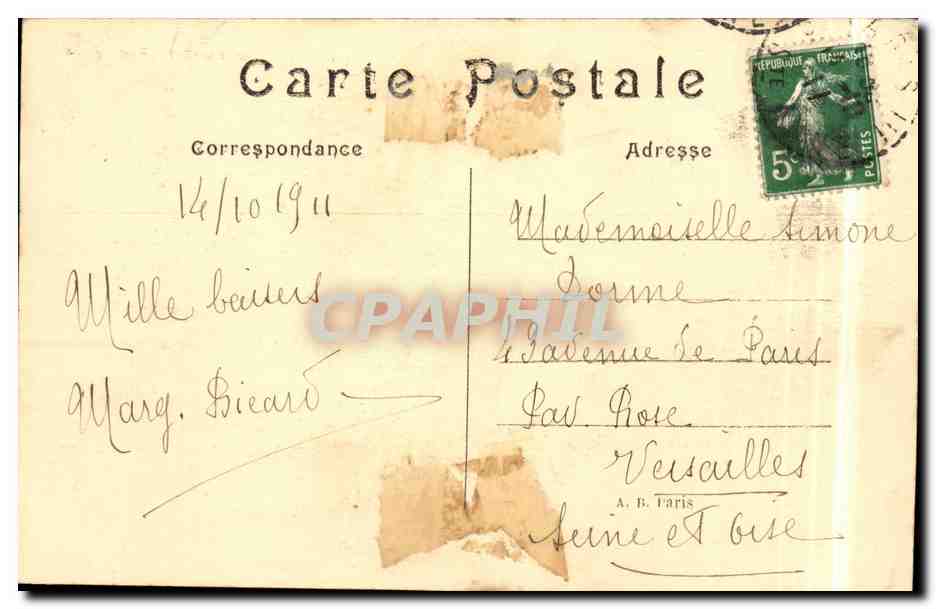 Carte Postale
RÉPUBLIQUE FRANÇAISE
5c
POSTES
Correspondance
Adresse
14/10 1911
Mille baisers
Marg. Bicard
Mademoiselle Simone
Dorme
43 avenue de Paris
Pav. Rose
Versailles
A. B. Paris
Seine et Oise
CPAPHIL